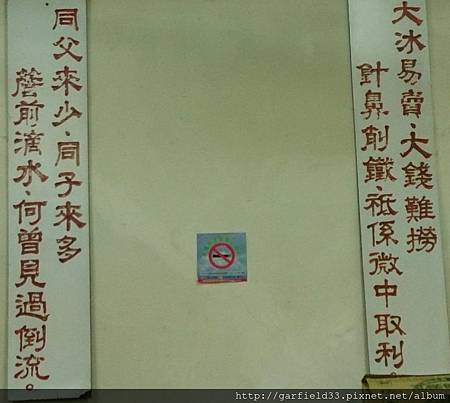 大冰易賣、大錢難撈
針鼻削鐵、祗係微中取利。
同父來少、同子來多
簷前滴水、何曾見過倒流。
http://garfield33.pixnet.net/album